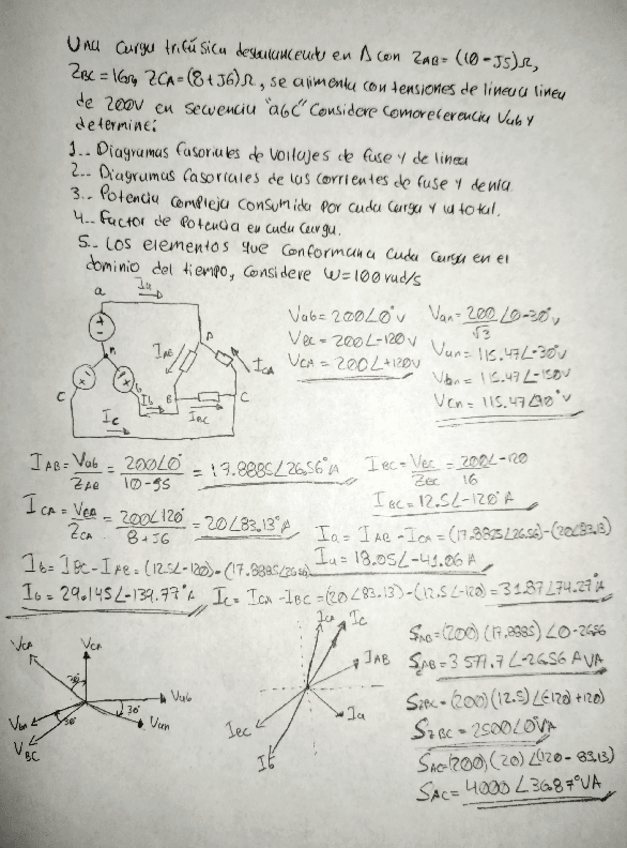 Una carga trifásica desbalanceada en Δ con ZAB=(10-J5)Ω,
ZBC=16Ω, ZCA=(8+J6)Ω, se alimenta con tensiones de linea a linea
de 200V en secuencia "abc" Considere como referencia Vab y
determine:
1.- Diagramas fasoriales de voltajes de fase y de linea
2.- Diagramas fasoriales de las corrientes de fase y de linea.
3.- Potencia compleja consumida por cada carga y la total.
4.- Factor de Potencia en cada carga.
5.- Los elementos que conforman a cada carga en el
dominio del tiempo, considere W=100rad/s
Ia
a
n
A
IAB
ICA
C
b
Ib
B
C
Ic
IBC
Vab=200∠0°v
VBC=200∠-120v
VCA=200∠+120v
Van=200/√3 ∠0-30°v
Van=115.47∠-30v
Vbn=115.47∠-150v
Vcn=115.47∠90°v
IAB=Vab/ZAB=200∠0°/10-j5=17.8885∠26.56°A
IBC=VBC/ZBC=200∠-120/16
IBC=12.5∠-120°A
ICA=VCA/ZCA=200∠120°/8+J6=20∠83.13°A
Ia=IAB-ICA=(17.8885∠26.56)-(20∠83.13)
Ia=18.05∠-41.06A
Ib=IBC-IAB=(12.5∠-120)-(17.8885∠26.56)
Ib=29.145∠-139.77°A
Ic=ICA-IBC=(20∠83.13)-(12.5∠-120)=31.87∠74.27°A
VCA
VCn
30°
Vab
30°
Van
Vbn
30°
VBC
ICA
Ic
IAB
Ia
IBC
Ib
SAB=(200)(17.8885)∠0-26.56
SAB=3577.7∠-26.56AVA
SZBC=(200)(12.5)∠(-120+120)
SZBC=2500∠0°VA
SAC=(200)(20)∠(120-83.13)
SAC=4000∠36.87°VA